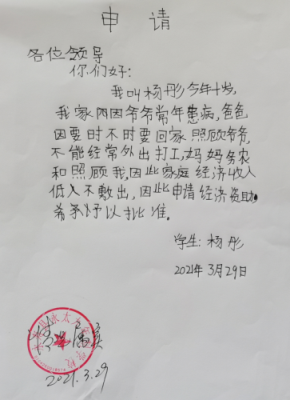 申请
各位领导
你们好:
我叫杨彤今年十岁,
我家两因爷爷常年患病,爸爸
因要时不时要回家照顾爷爷,
不能经常外出打工,妈妈务农
和照顾我,因此家庭经济收入
低入不敷出,因此申请经济资助,
希予以批准。
学生:杨彤
2021年3月29日
2021.3.29